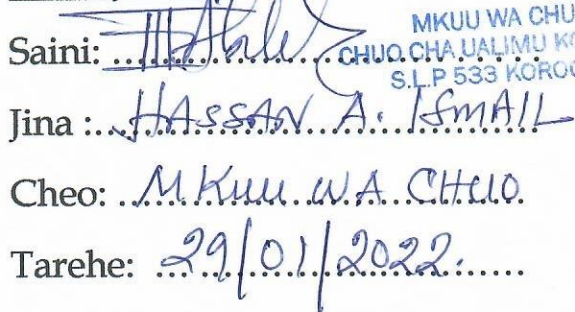 MKUU WA CHU
Saini:
CHUO CHA UALIMU KO
S.L.P 533 KOROG
Jina : HASSAN A. ISMAIL
Cheo: MKUU WA CHUO
Tarehe: 29/01/2022